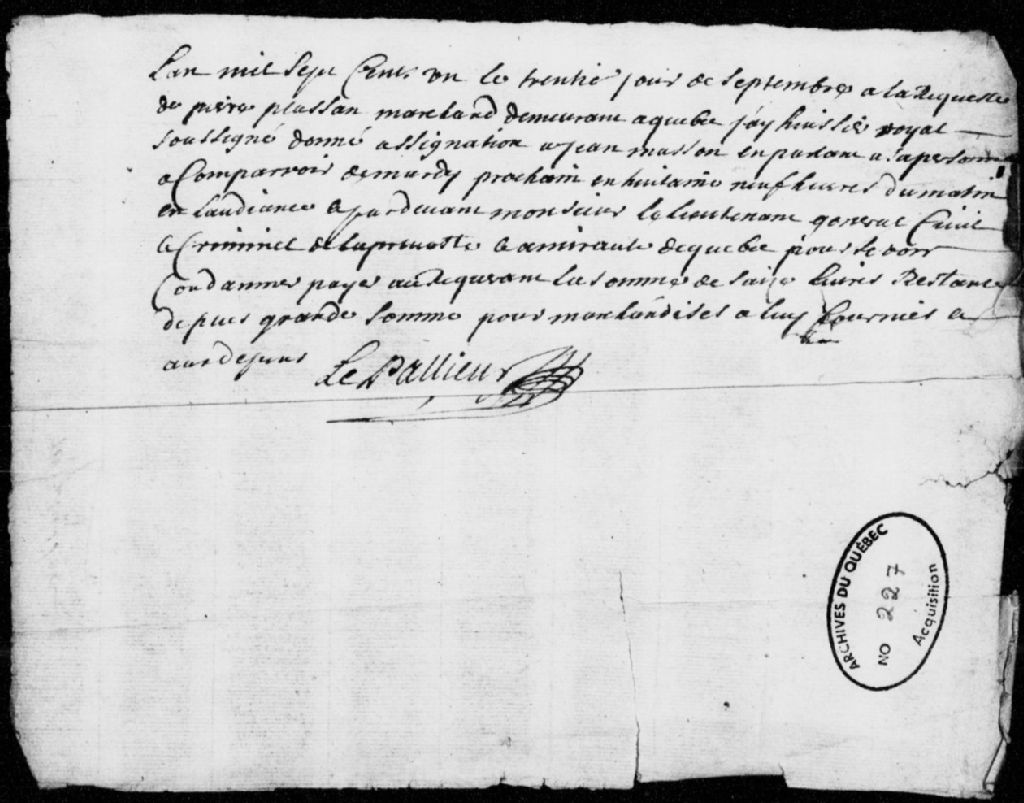 Lan mil Sept Cents un le trentie jour de Septembre a la Requeste
de pierre plassan marchand demeurant a quebec jay huissier royal
soussigné donné assignation a jean masson en parlant a sa personne
a Comparroir de mardy prochain en huitaine neuf heures du matin
en Laudiance & pardevant monsieur le lieutenant general Civil
& Criminel de la prevosté & amirauté de quebec pour se voir
Condanner payer au Requerant la somme de saize livres Restant
de plus grande somme pour marchandises a luy fournies &
aux depens
Le Pallieur
ARCHIVES DU QUÉBEC
NO 227
Acquisition